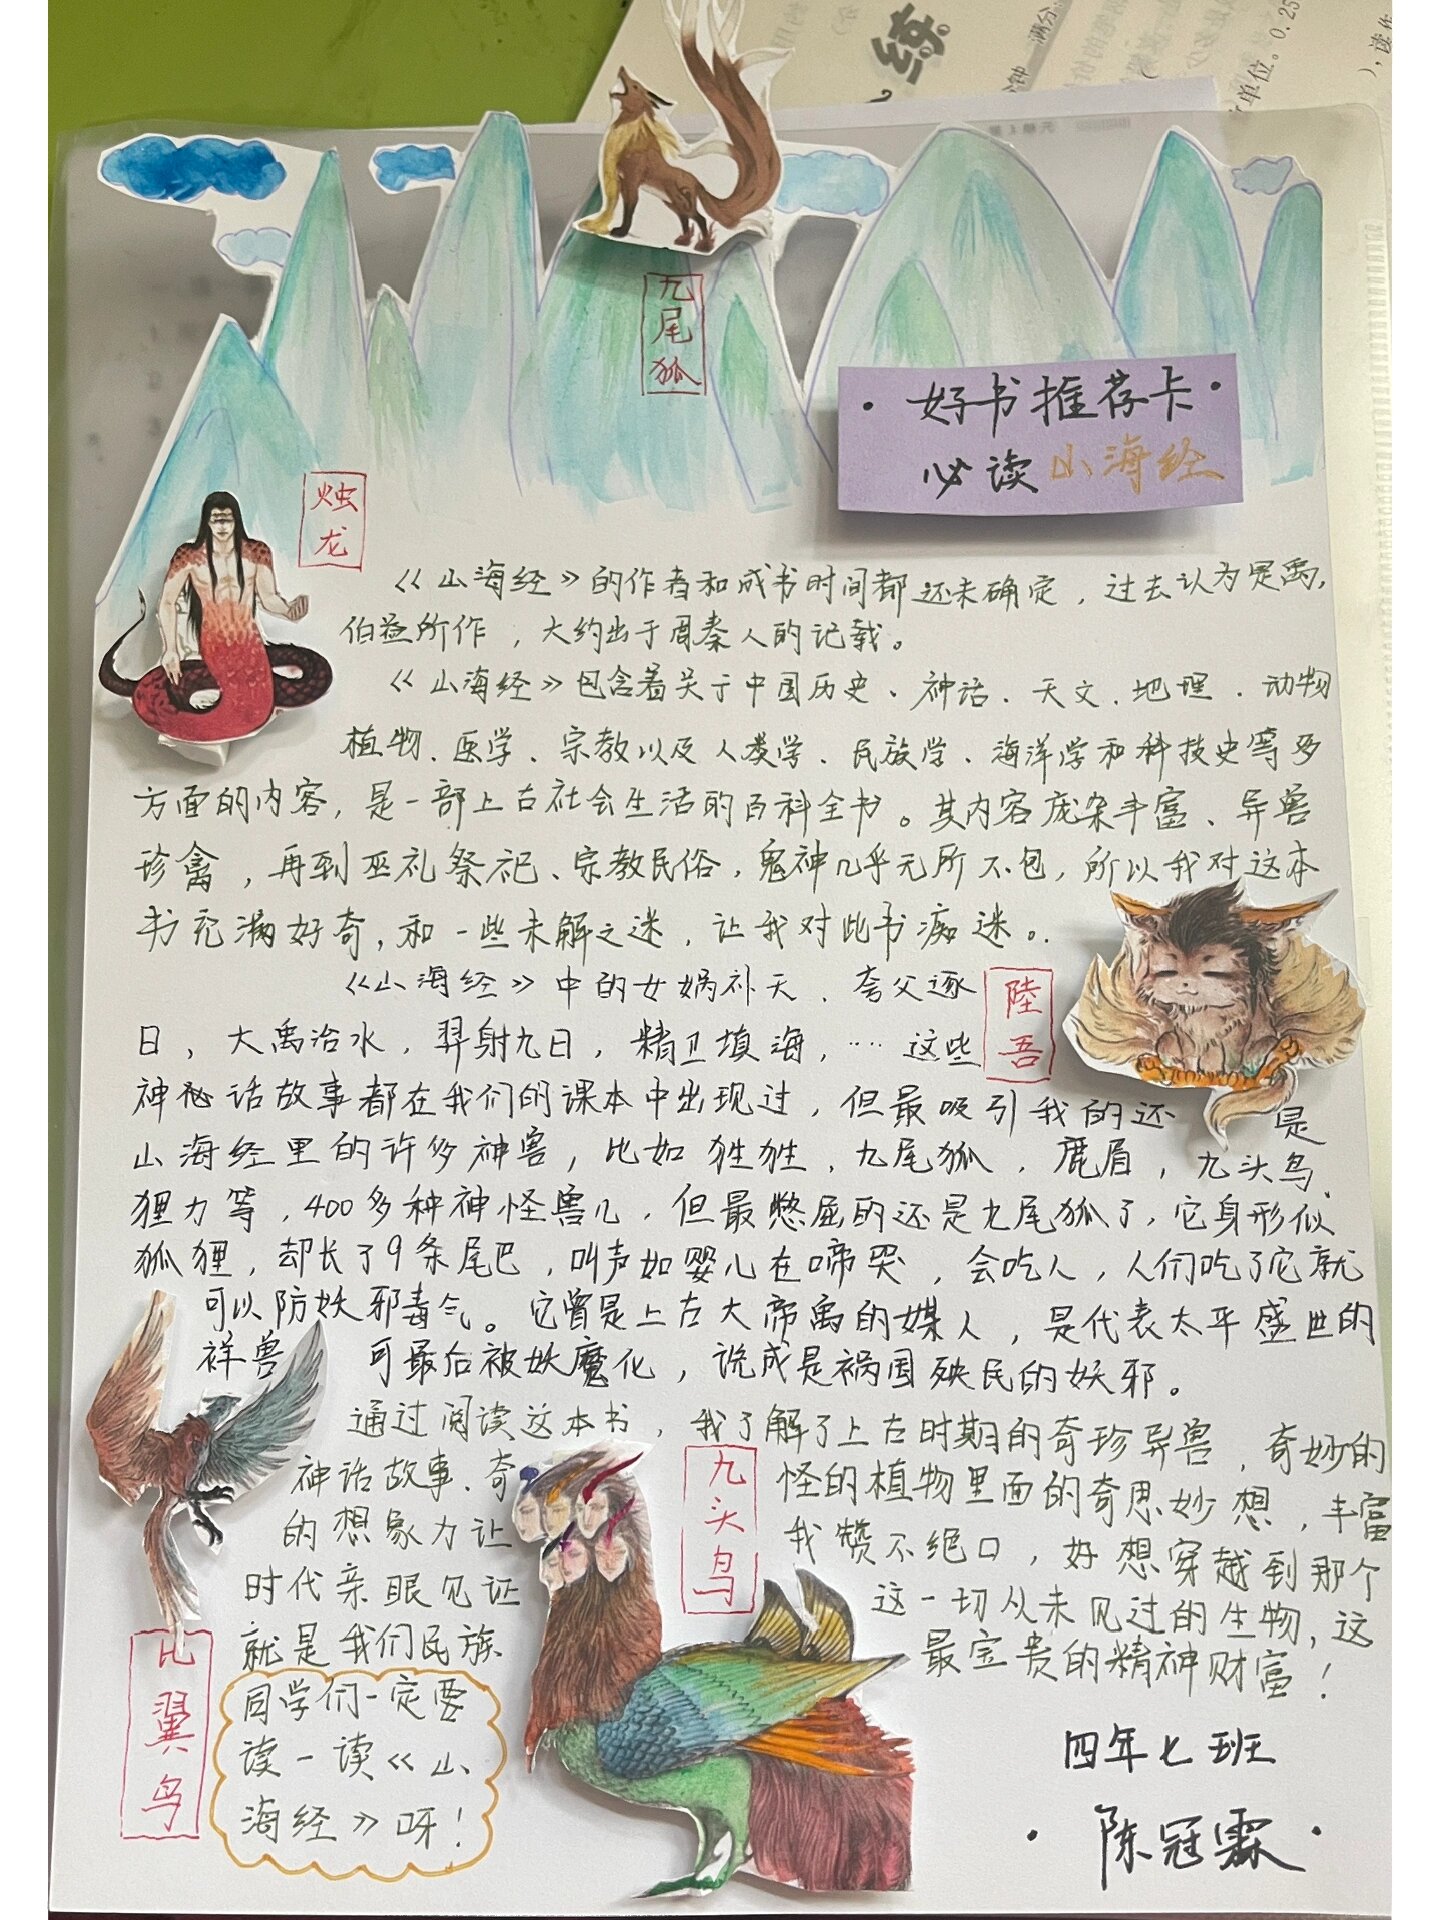 九尾狐
·好书推荐卡·
必读山海经
烛龙
《山海经》的作者和成书时间都还未确定，过去认为是禹,
伯益所作，大约出于周秦人的记载。
《山海经》包含着关于中国历史、神话、天文、地理、动物
植物、医学、宗教以及人类学、民族学、海洋学和科技史等多
方面的内容，是一部上古社会生活的百科全书。其内容庞杂丰富、异兽
珍禽，再到巫礼祭祀、宗教民俗，鬼神几乎无所不包，所以我对这本
书充满好奇，和一些未解之迷，让我对此书痴迷。
《山海经》中的女娲补天、夸父逐
日、大禹治水，羿射九日，精卫填海，…… 这些
陸吾
神秘话故事都在我们的课本中出现过，但最吸引我的还是
山海经里的许多神兽，比如狌狌，九尾狐，鹿眉，九头鸟、
狸力等，400多种神怪兽儿，但最憋屈的还是九尾狐了，它身形似
狐狸，却长了9条尾巴，叫声如婴儿在啼哭，会吃人，人们吃了它就
可以防妖邪毒气。它曾是上古大帝禹的媒人，是代表太平盛世的
祥兽 可最后被妖魔化，说成是祸国殃民的妖邪。
通过阅读这本书，我了解了上古时期的奇珍异兽，奇妙的
神话故事、奇怪的植物里面的奇思妙想，丰富
的想象力让我赞不绝口，好想穿越到那个
时代亲眼见证这一切从未见过的生物，这
就是我们民族最宝贵的精神财富！
九头鸟
比翼鸟
同学们一定要
读一读《山
海经》呀！
四年七班
·陈冠霖·
练
满分
单位。0.25